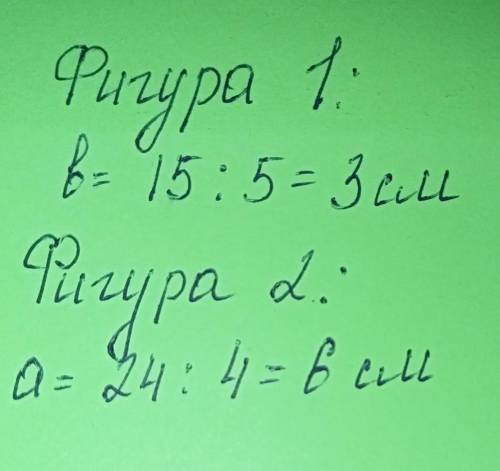 Фигура 1:
в= 15 : 5 = 3 см
Фигура 2:
а= 24 : 4 = 6 см